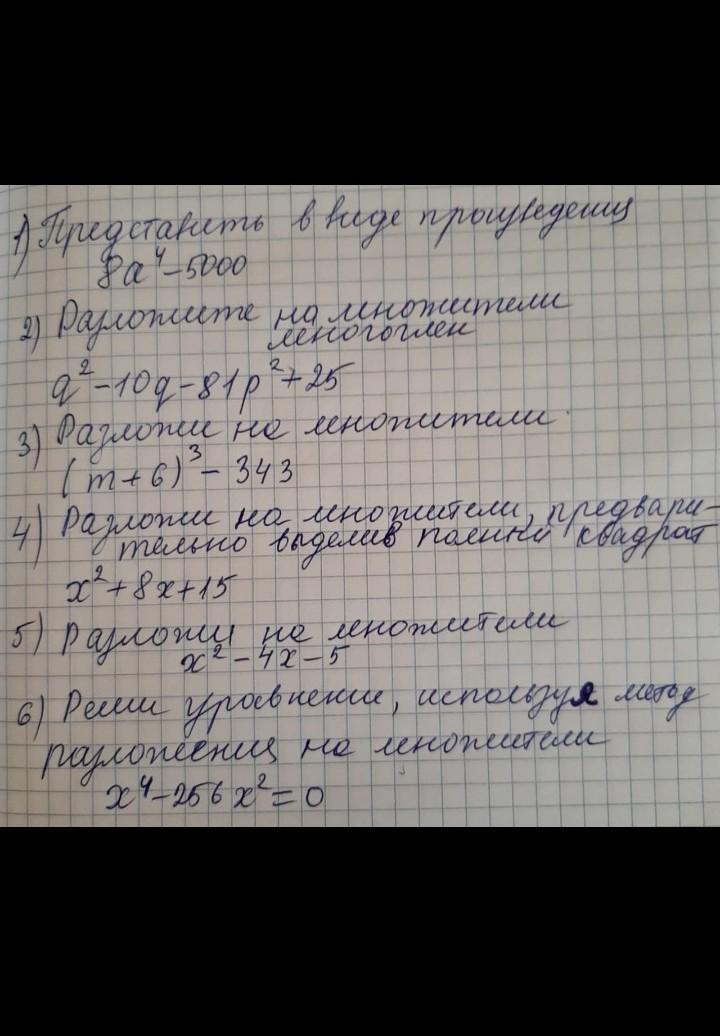 1) Представить в виде произведения
8a⁴-5000
2) Разложите на множители
многочлен
q²-10q-81p²+25
3) Разложи на множители.
(m+6)³-343
4) Разложи на множители, предвари-
тельно выделив полный квадрат
x²+8x+15
5) Разложи на множители
x²-4x-5
6) Реши уравнение, используя метод
разложения на множители
x⁴-256x²=0